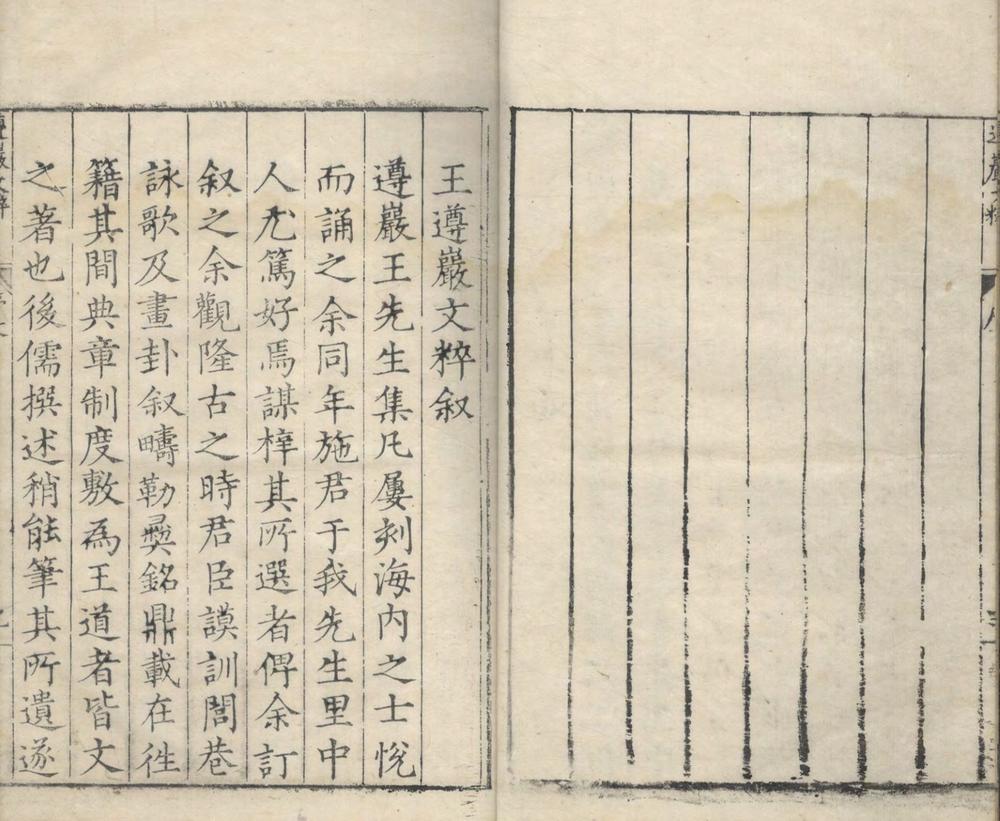 王遵巖文粹叙
遵巖王先生集凡屢刻海内之士悅
而誦之余同年施君于我先生里中
人尤篤好焉謀梓其所選者俾余訂
叙之余觀隆古之時君臣謨訓閭巷
詠歌及畫卦叙疇勒彛銘鼎載在徃
籍其間典章制度敷為王道者皆文
之著也後儒撰述稍能筆其所遺遂